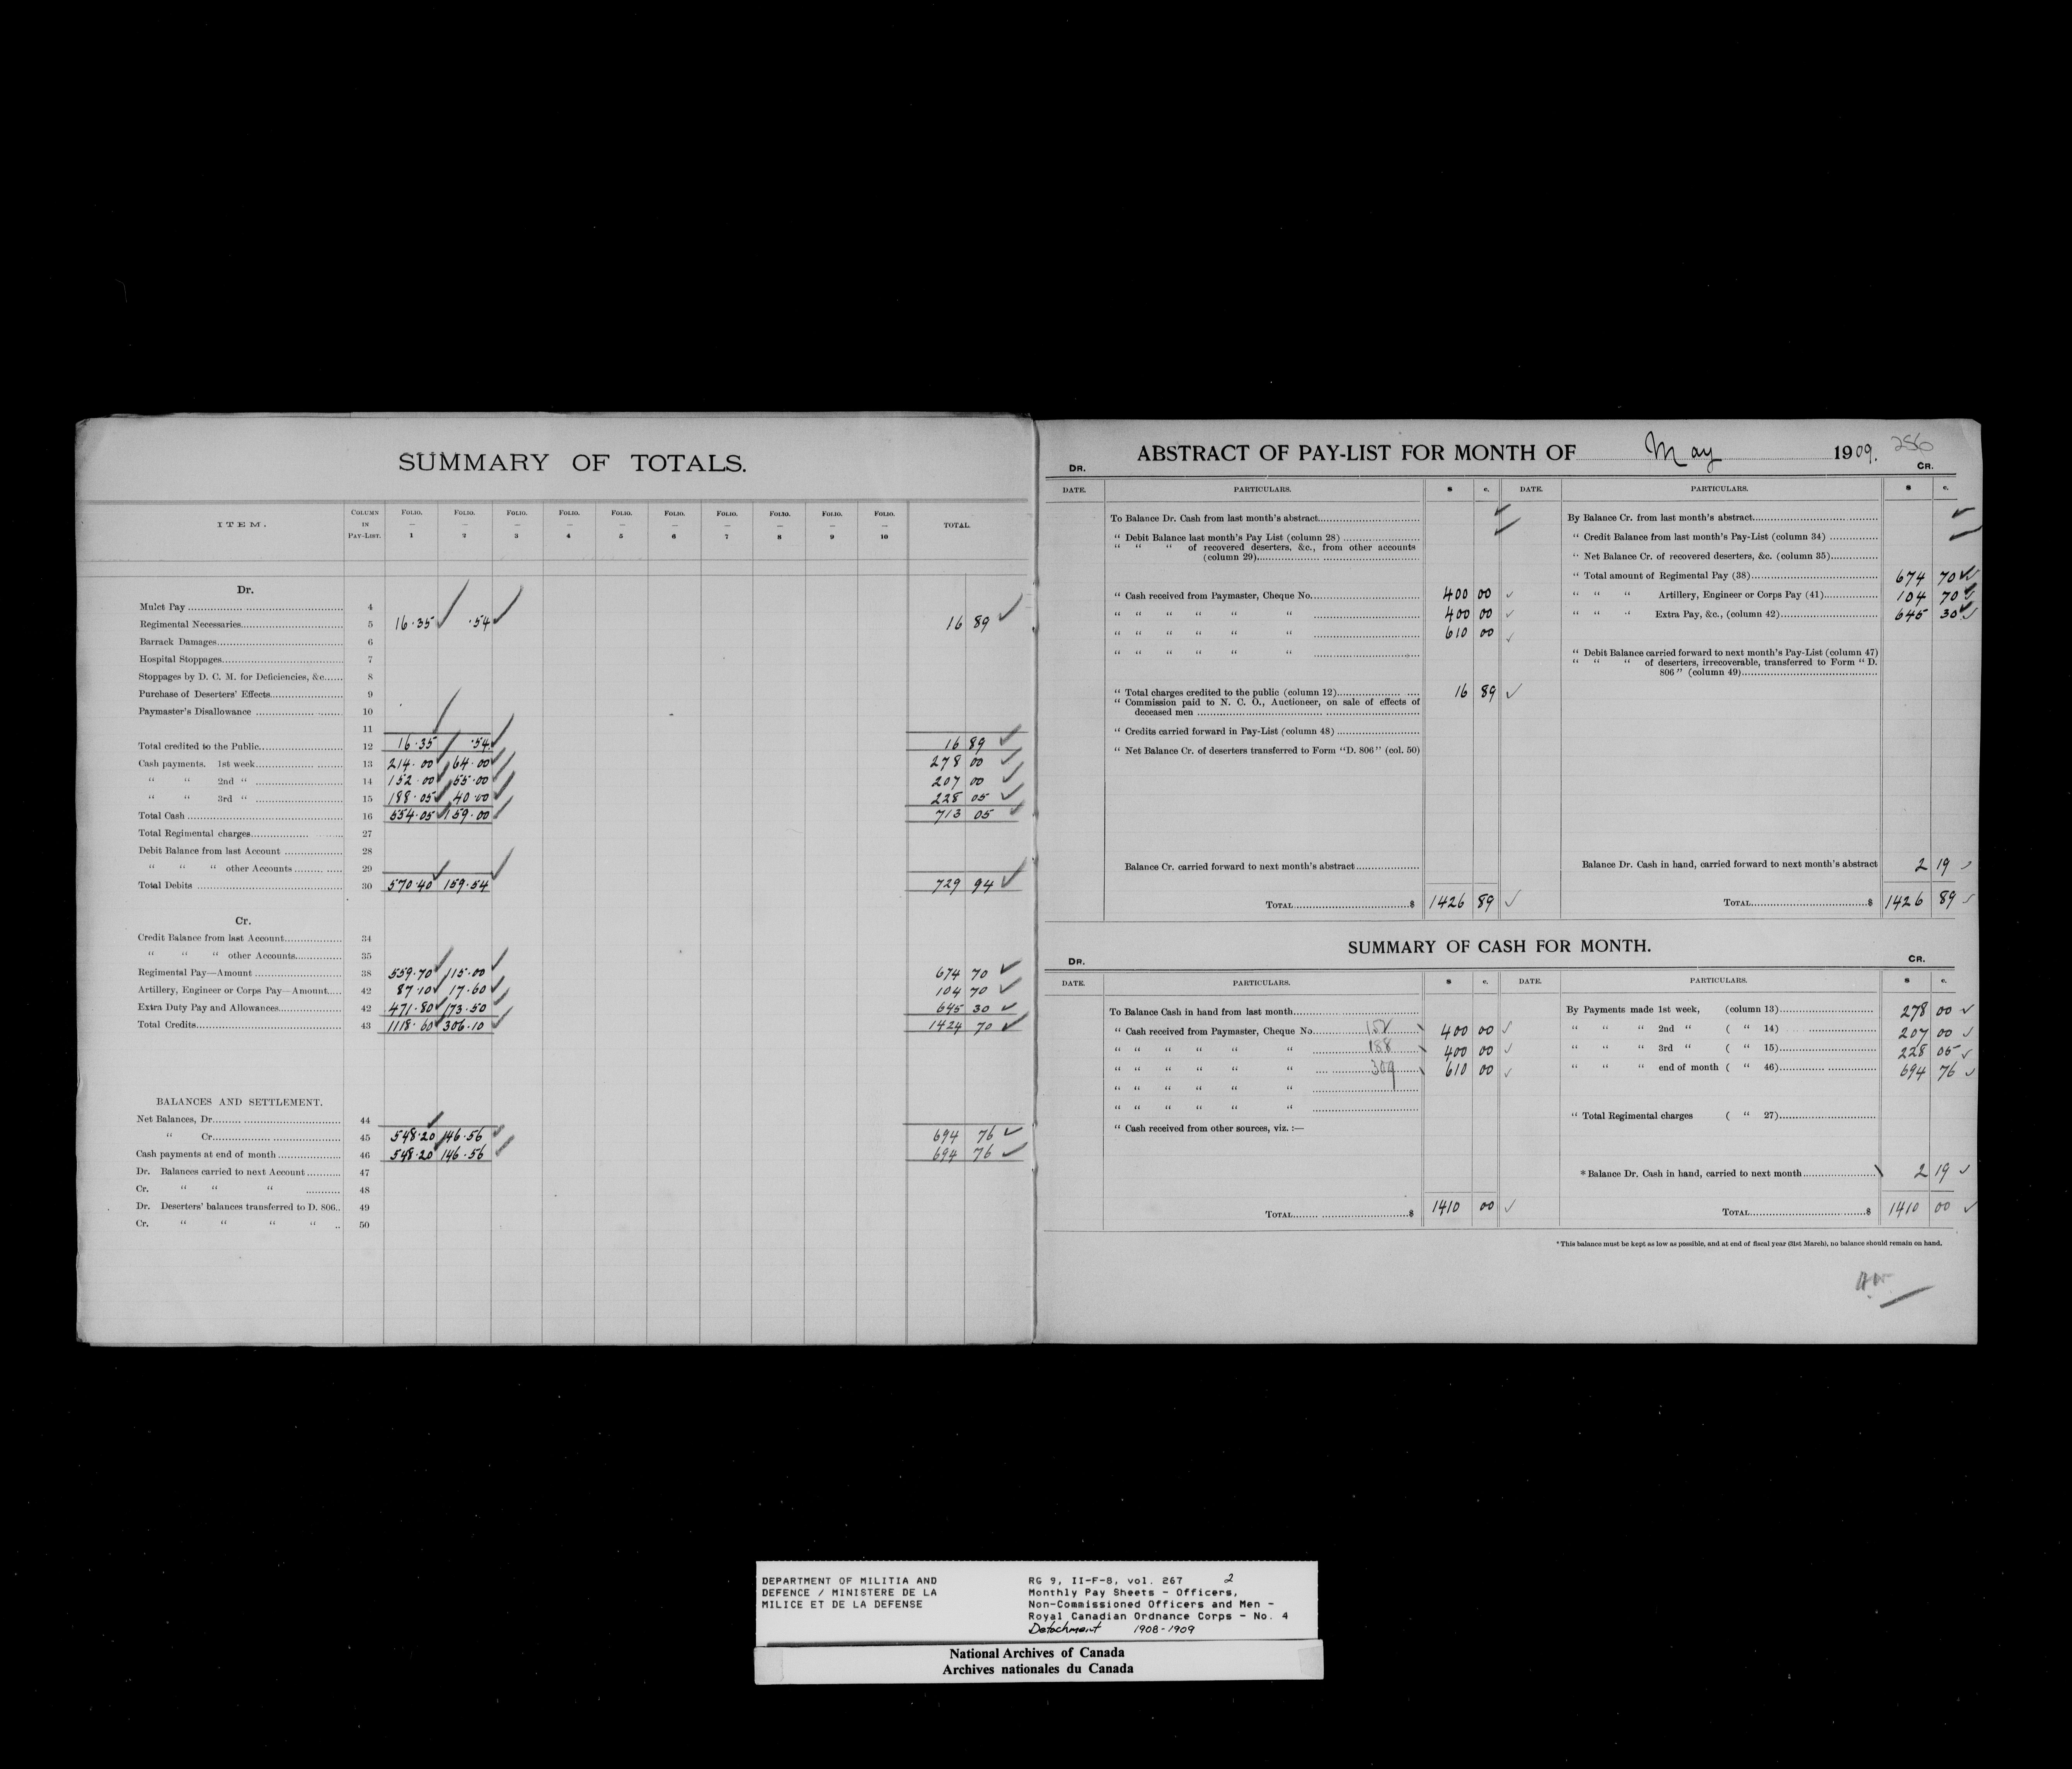 SUMMARY OF TOTALS.
ITEM. COLUMN IN PAY-LIST. FOLIO. — 1 FOLIO. — 2 FOLIO. — 3 FOLIO. — 4 FOLIO. — 5 FOLIO. — 6 FOLIO. — 7 FOLIO. — 8 FOLIO. — 9 FOLIO. — 10 TOTAL.
Dr.
Mulct Pay 4
Regimental Necessaries 5 16.35 .54 16 89
Barrack Damages 6
Hospital Stoppages 7
Stoppages by D. C. M. for Deficiencies, &c 8
Purchase of Deserters' Effects 9
Paymaster's Disallowance 10
11
Total credited to the Public 12 16.35 .54 16 89
Cash payments. 1st week 13 214.00 64.00 278 00
" " 2nd " 14 152.00 55.00 207 00
" " 3rd " 15 188.05 40.00 228 05
Total Cash 16 554.05 159.00 713 05
Total Regimental charges 27
Debit Balance from last Account 28
" " " other Accounts 29
Total Debits 30 570.40 159.54 729 94
Cr.
Credit Balance from last Account 34
" " " other Accounts 35
Regimental Pay—Amount 38 559.70 115.00 674 70
Artillery, Engineer or Corps Pay—Amount 42 87.10 17.60 104 70
Extra Duty Pay and Allowances 42 471.80 173.50 645 30
Total Credits 43 1118.60 306.10 1424 70
BALANCES AND SETTLEMENT.
Net Balances, Dr 44
" Cr 45 548.20 146.56 694 76
Cash payments at end of month 46 548.20 146.56 694 76
Dr. Balances carried to next Account 47
Cr. " " " 48
Dr. Deserters' balances transferred to D. 806.. 49
Cr. " " " " .. 50
ABSTRACT OF PAY-LIST FOR MONTH OF May 1909. 286
DR. CR.
DATE. PARTICULARS. $ c. DATE. PARTICULARS. $ c.
To Balance Dr. Cash from last month's abstract
" Debit Balance last month's Pay List (column 28)
" " " of recovered deserters, &c., from other accounts
(column 29)
" Cash received from Paymaster, Cheque No. 400 00
" " " " " " 400 00
" " " " " " 610 00
" " " " " "
" Total charges credited to the public (column 12) 16 89
" Commission paid to N. C. O., Auctioneer, on sale of effects of
deceased men
" Credits carried forward in Pay-List (column 48)
" Net Balance Cr. of deserters transferred to Form "D. 806" (col. 50)
Balance Cr. carried forward to next month's abstract
TOTAL $ 1426 89
By Balance Cr. from last month's abstract
" Credit Balance from last month's Pay-List (column 34)
" Net Balance Cr. of recovered deserters, &c. (column 35)
" Total amount of Regimental Pay (38) 674 70
" " " Artillery, Engineer or Corps Pay (41) 104 70
" " " Extra Pay, &c., (column 42) 645 30
" Debit Balance carried forward to next month's Pay-List (column 47)
" " " of deserters, irrecoverable, transferred to Form "D.
806" (column 49)
Balance Dr. Cash in hand, carried forward to next month's abstract 2 19
TOTAL $ 1426 89
SUMMARY OF CASH FOR MONTH.
DR. CR.
DATE. PARTICULARS. $ c. DATE. PARTICULARS. $ c.
To Balance Cash in hand from last month
" Cash received from Paymaster, Cheque No. 400 00
" " " " " " 188 400 00
" " " " " " 309 610 00
" " " " " "
" " " " " "
" Cash received from other sources, viz. :—
TOTAL $ 1410 00
By Payments made 1st week, (column 13) 278 00
" " " 2nd " ( " 14) 207 00
" " " 3rd " ( " 15) 228 05
" " " end of month ( " 46) 694 76
" Total Regimental charges ( " 27)
* Balance Dr. Cash in hand, carried to next month 2 19
TOTAL $ 1410 00
* This balance must be kept as low as possible, and at end of fiscal year (31st March), no balance should remain on hand.
DEPARTMENT OF MILITIA AND
DEFENCE / MINISTERE DE LA
MILICE ET DE LA DEFENSE
RG 9, II-F-8, vol. 267 2
Monthly Pay Sheets - Officers,
Non-Commissioned Officers and Men -
Royal Canadian Ordnance Corps - No. 4
Detachment 1908-1909
National Archives of Canada
Archives nationales du Canada